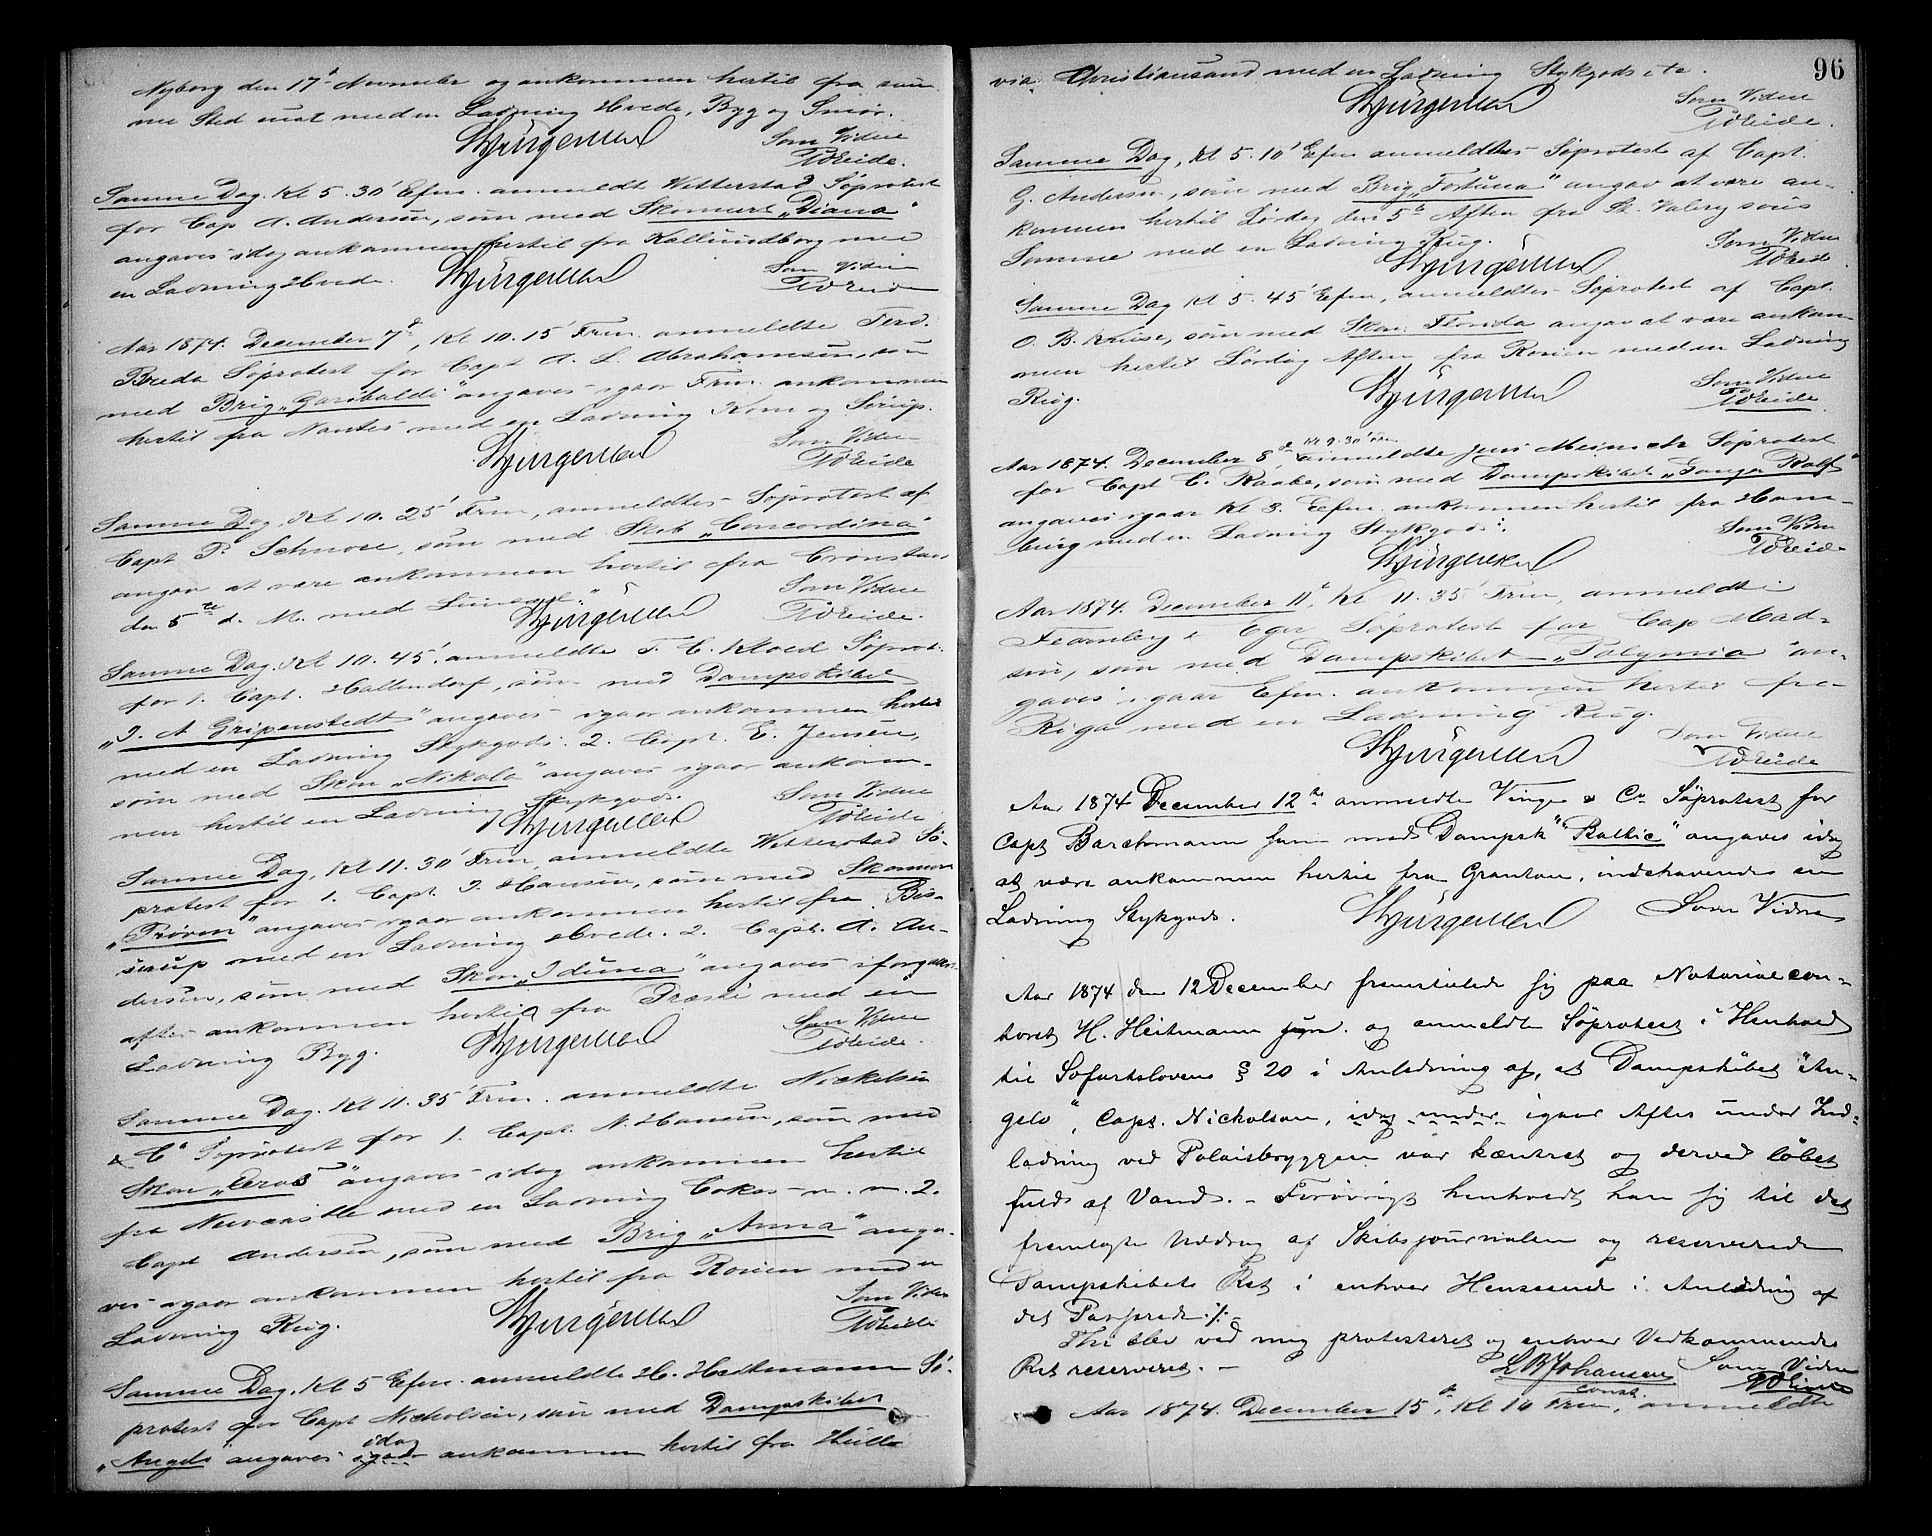 Nyborg den 17d November og ankommen hertil fra sam-
me Sted med en Ladning Hvede, Byg og Smør.
Som Vidne
Samme Dag. Kl 5.30' Efm. anmeldt Wetterstad Søprotest
for Cap A. Andersen, som med Skonnert „Diana"
angaves idag ankommen hertil fra Kallundborg med
en Ladning Hvede.
Som Vidne
Aar 1874. December 7d, Kl 10.15' Frm. anmeldte Ferd.
Breda Søprotest for Capt A. L. Abrahamsen, som
med Brig „Garibaldi" angaves igaar Frm. ankommen
hertil fra Nantes med en Ladning Korn og Sirup.
Som Vidne
Samme Dag, Kl 10.25' Frm, anmeldtes Søprotest af
Capt P. Schnore, som med Skib „Concordina"
angav at være ankommen hertil fra Cronstad
den 5te d. M. med
Som Vidne
Samme Dag. Kl 10.45'. anmeldte T. C. Kloed Søprot.
for 1. Capt. Hallendorf, som med Dampskibet
„J. A Gripenstedt" angaves igaar ankommen hertil
med en Ladning Stykgods. 2. Capt. E. Jensen,
som med Skon „Nikolo" angaves igaar ankom-
men hertil en Ladning Stykgods.
Som Vidne
Samme Dag, Kl 11.30' Frm, anmeldte Wetterstad Sø-
protest for 1. Capt. J. Hansen, som med Skonnert
„Prøven" angaves igaar ankommen hertil fra Bis-
serup med en Ladning Hvede. 2. Capt. A. An-
dersen, som med Skon „Iduna" angaves iforgaars
aftes ankommen hertil fra Præstø med en
Ladning Byg.
Som Vidne
Samme Dag. Kl 11.35' Frm. anmeldte Nickelsen
& Co Søprotest for 1. Capt. N. Hansen, som med
Skon „Eros" angaves idag ankommen hertil
fra Newcastle med en Ladning Cokes m. m. 2.
Capt Andersen, som med Brig „Anna" anga-
ves igaar ankommen hertil fra Rouen med en
Ladning Rug.
Som Vidne
Samme Dag. Kl 5 Efm. anmeldte H. Heitmann Sø-
protest for Capt Nicholson, som med Dampskibet
idag
„Angelo" angaves igaar ankommen hertil fra Hull
96
via Christiansand med en Ladning Stykgods etc.
Som Vidne
Samme Dag, Kl 5.10' Efm anmeldtes Søprotest af Capt.
G. Andersen, som med Brig „Fortuna" angav at være an-
kommen hertil Lørdag den 5te Aften fra St. Valery sous
Somme med en Ladning Rug.
Som Vidne
Samme Dag Kl 5.45' Efm, anmeldtes Søprotest af Capt.
O. B. Kruse, som med Skon. Florida angav at være ankom-
men hertil Lørdag Aften fra Rouen med en Ladning
Rug.
Som Vidne
Aar 1874. December 8d, Kl 9.30' Frm anmeldte Jens Meinich Søprotest
for Capt C. Raabe, som med Dampskibet „Ganger Rolf"
angaves igaar Kl 3. Efm. ankommen hertil fra Ham-
burg med en Ladning Stykgods.
Som Vidne
Aar 1874. December 11d, Kl 11.35' Frm, anmeldte
Fearnley & Eger Søprotest for Cap Mad-
sen, som med Dampskibet „Polymia" an-
gaves igaar Efm. ankommen hertil fra
Riga med en Ladning Rug.
Som Vidne
Aar 1874 December 12te anmeldte Vinge & Co Søprotest for
Capt Barchmann som med Dampsk "Baltic" angaves idag
at være ankommen hertil fra Granton, indehavende en
Ladning Stykgods.
Som Vidne
Aar 1874 den 12 December fremstillede sig paa Notarialcon-
toret H. Heitmann jun. og anmeldte Søprotest i Henhold
til Søfartslovens § 20 i Anledning af, at Dampskibet "An-
gelo", Capt. Nicholson, idag under igaar Aftes under Ind-
ladning ved Palaisbryggen var kæntret og derved løbet
fuld af Vand. - Forøvrigt henholdt han sig til det
fremlagte Uddrag af Skibsjournalen og reserverede
Dampskibets Ret i enhver Henseende i Anledning af
det Passerede ./.
Thi blev ved mig protesteret og enhver Vedkommendes
Ret reserveret. -
L B Johansen
const.
Som Vidne
Aar 1874. December 15d, Kl 10 Frm, anmeldte